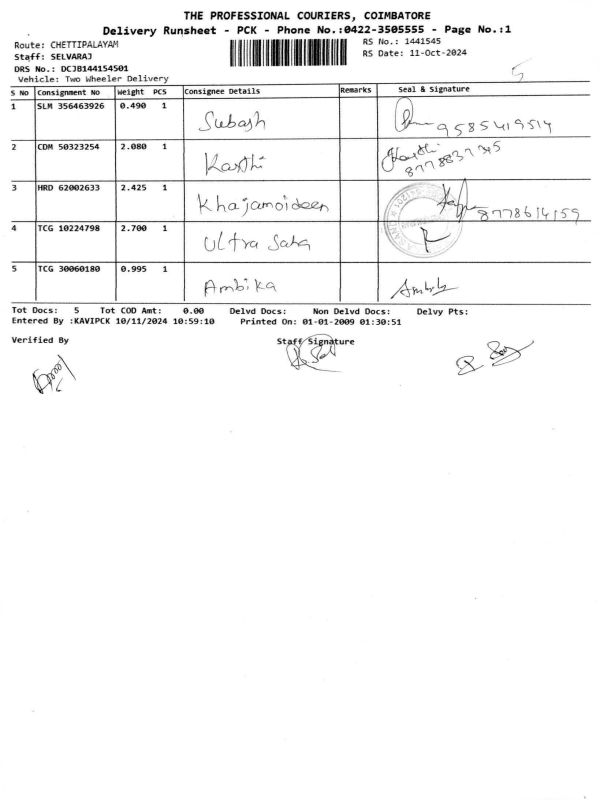 THE PROFESSIONAL COURIERS, COIMBATORE
Delivery Runsheet - PCK - Phone No.:0422-3505555 - Page No.:1
Route: CHETTIPALAYAM
RS No.: 1441545
Staff: SELVARAJ
RS Date: 11-Oct-2024
DRS No.: DCJB144154501
Vehicle: Two Wheeler Delivery
5
S No Consignment No Weight PCS Consignee Details Remarks Seal & Signature
1 SLM 356463926 0.490 1 Subash 9585419514
2 CDM 50323254 2.080 1 Karthi Karthi
3 HRD 62002633 2.425 1 Khajamoideen 8778614159
4 TCG 10224798 2.700 1 Ultra Saha
5 TCG 30060180 0.995 1 Ambika
Tot Docs: 5 Tot COD Amt: 0.00 Delvd Docs: Non Delvd Docs: Delvy Pts:
Entered By :KAVIPCK 10/11/2024 10:59:10 Printed On: 01-01-2009 01:30:51
Verified By Staff Signature